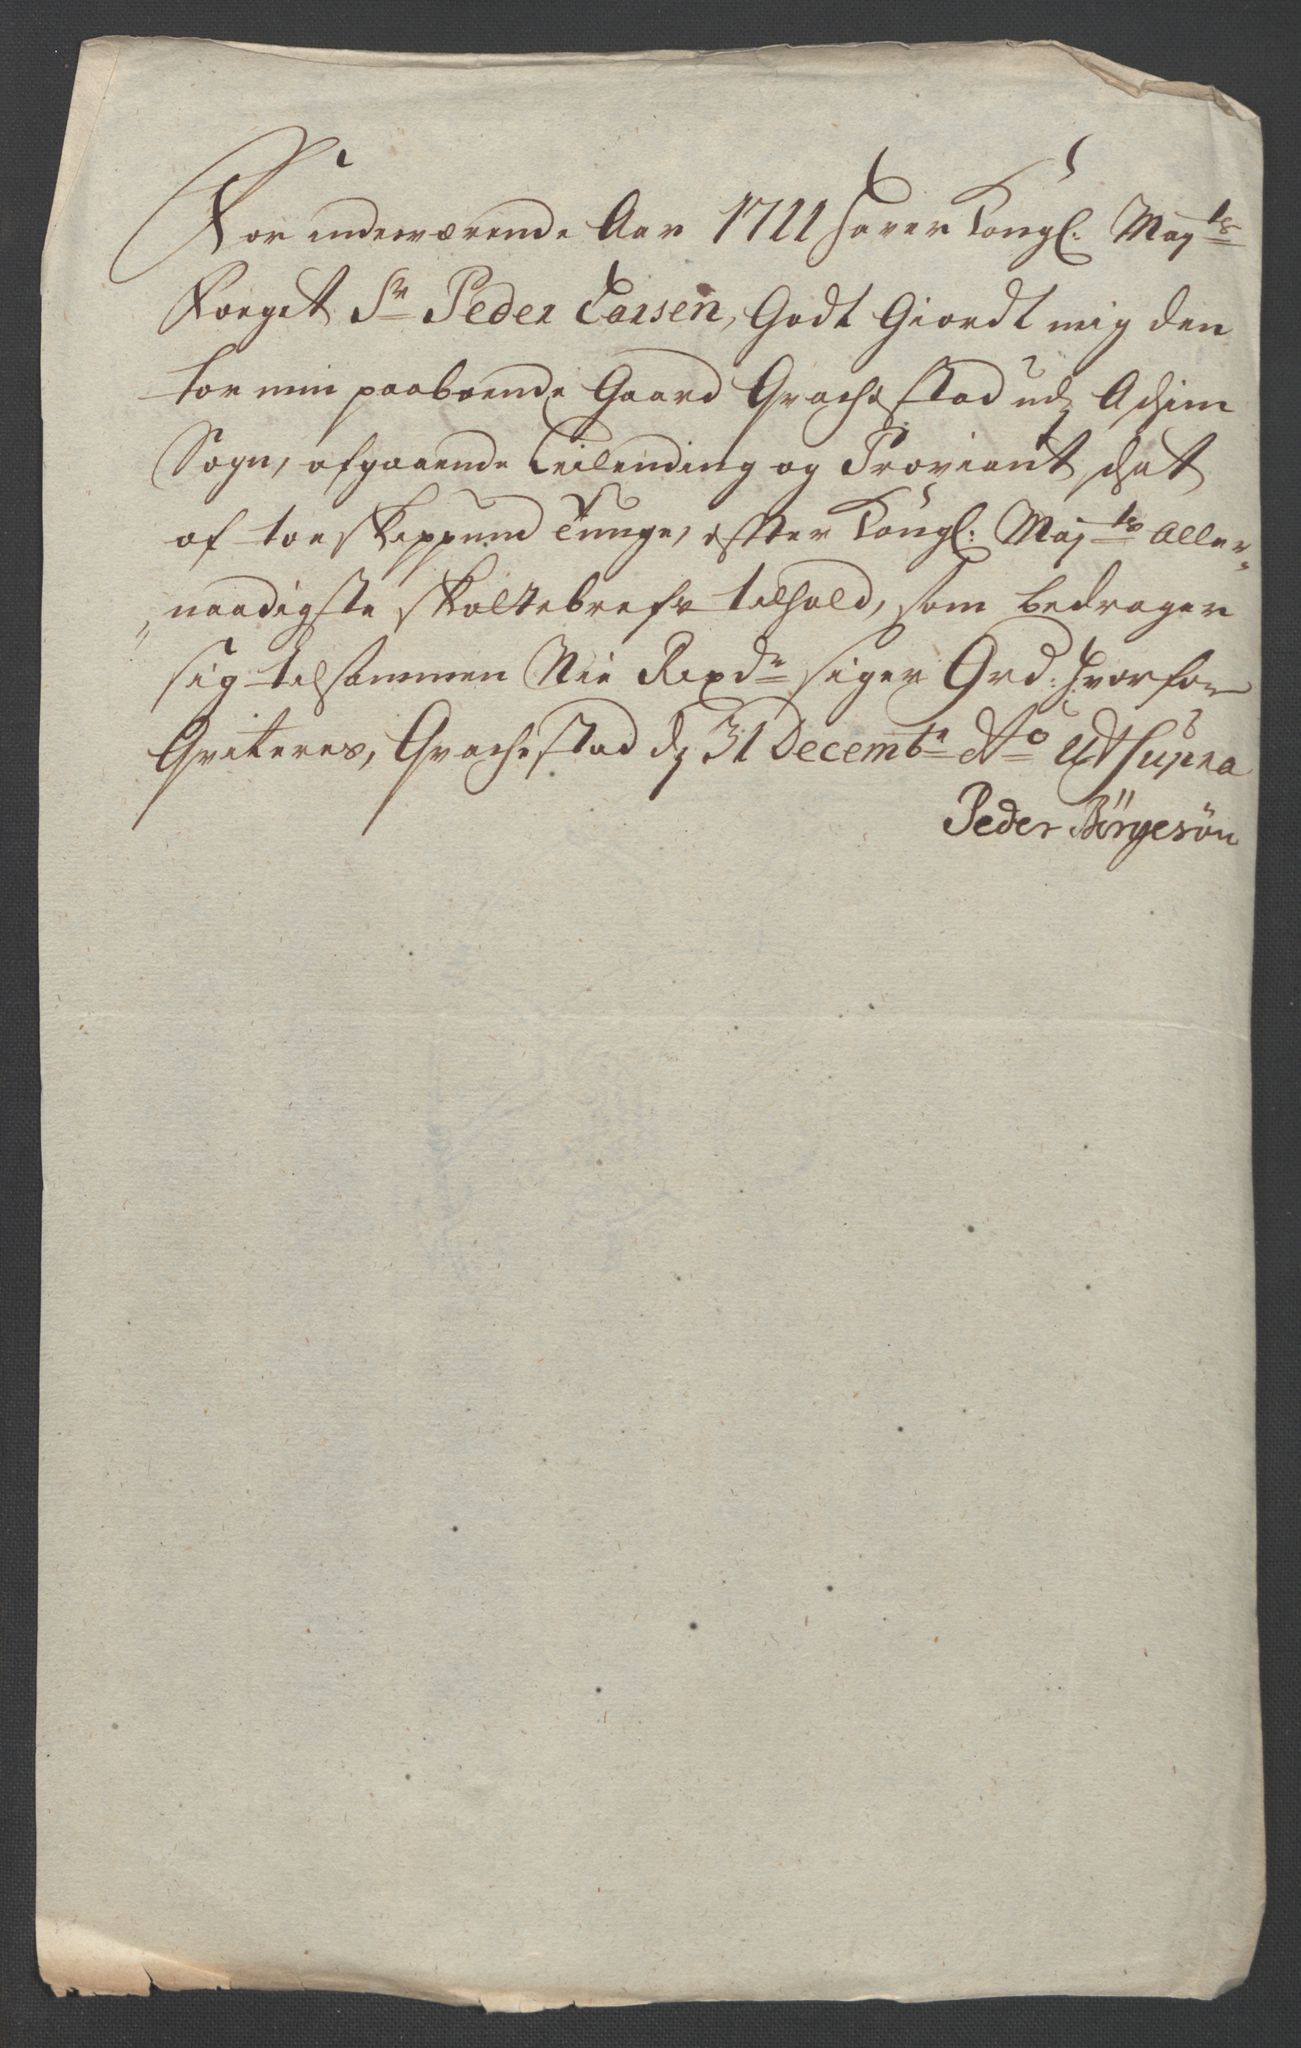 For indeværende Aar 1711 hafver Kongl: Maj.ts
Foeget Sr Peder Larsen, Godt Giordt mig den
for min paaboende Gaard Grachestad udj Aschim
Sogn, afgaaende Leilending og Proviant schat
af toe skippund Tunge, efter Kongl: Maj.ts Aller„
„naadigste skattebrefs tilhold, som bedrager
sig tilsammen Nie Rixdr siger 9rd: hvorfor
Qviteres, Grachestad dj 31 Decembr Ao Ut Supra
Peder Børgesøn